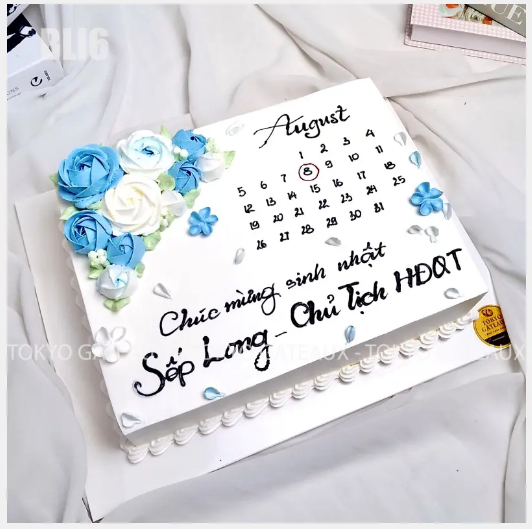 BLI6
August
1 2 3 4
5 6 7 8 9 10 11
12 13 14 15 16 17 18
19 20 21 22 23 24 25
26 27 28 29 30 31
Chúc mừng sinh nhật
Sếp Long - Chủ Tịch HĐQT
TOKYO GATEAUX - TOKYO GATEAUX
TOKYO
GATEAUX